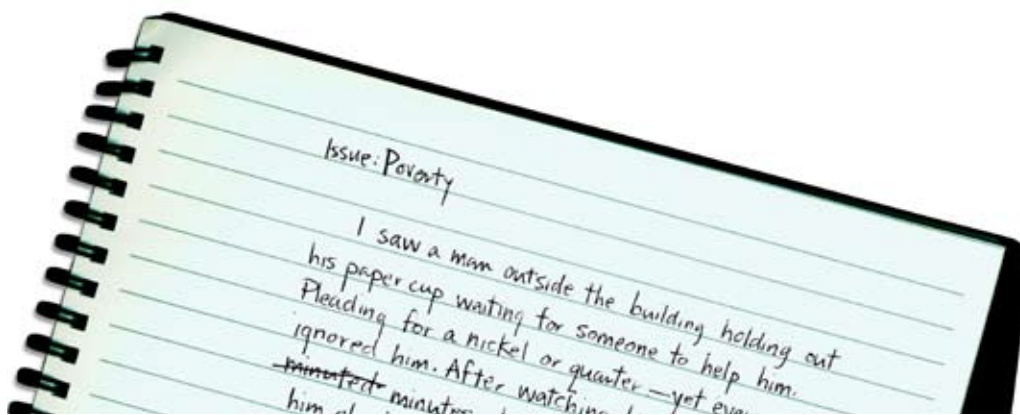 Issue: Poverty
I saw a man outside the building holding out
his paper cup waiting for someone to help him.
Pleading for a nickel or quarter—yet
ignored him. After watching
minuted minutes
him